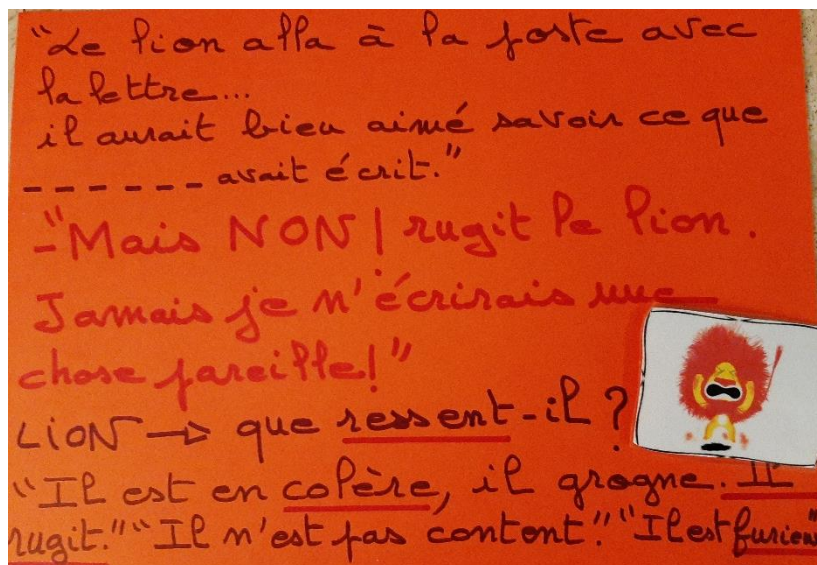 "Le lion alla à la poste avec
la lettre...
il aurait bien aimé savoir ce que
_ _ _ _ _ _ avait écrit."
-"Mais NON ! rugit le lion.
Jamais je n'écrirais une
chose pareille!"
LION → que ressent-il ?
"Il est en colère, il grogne. Il
rugit." "Il n'est pas content." "Il est furieux"